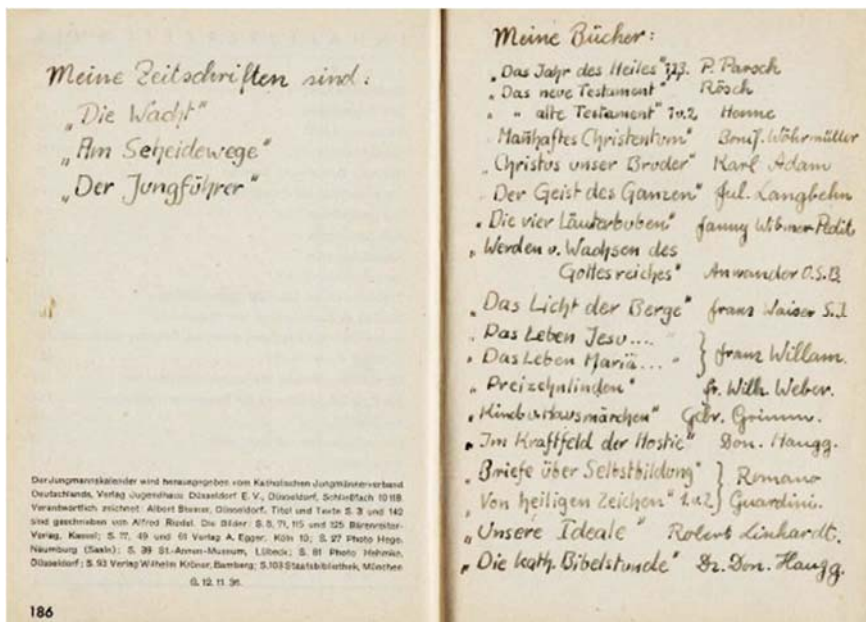 Meine Zeitschriften sind:
„Die Wacht"
„Am Scheidewege"
„Der Jungführer"
Der Jungmannskalender wird herausgegeben vom Katholischen Jungmännerverband
Deutschlands, Verlag Jugendhaus Düsseldorf E. V., Düsseldorf, Schließfach 10118.
Verantwortlich zeichnet: Albert Steiner, Düsseldorf. Titel und Texte S. 3 und 142
sind geschrieben von Alfred Riedel. Die Bilder: S. 71, 115 und 125 Bärenreiter-
Verlag, Kassel; S. 17, 49 und 61 Verlag A. Egger, Köln 10; S. 27 Photo Hege,
Naumburg (Saale); S. 39 St.-Annen-Museum, Lübeck; S. 81 Photo Hehmke,
Düsseldorf; S. 93 Verlag Wilhelm Kröner, Bamberg; S. 103 Staatsbibliothek, München
G. 12. 11. 36.
186
Meine Bücher:
„Das Jahr des Heiles" 1,2,3. P. Parsch
„Das neue Testament" Rösch
„ „ alte Testament" 1u.2 Henne
„Mannhaftes Christentum" Bonif. Wöhrmüller
„Christus unser Bruder" Karl Adam
„Der Geist des Ganzen" Jul. Langbehn
„Die vier Läuterbuben" Fanny Wibmer-Pedit
„Werden u. Wachsen des
Gottesreiches" Anwander O.S.B.
„Das Licht der Berge" Franz Waiser S.J.
„Das Leben Jesu.... "
„Das Leben Mariä... " } Franz Willam.
„Dreizehnlinden" Fr. Wilh. Weber.
„Kind u. Hausmärchen" Gebr. Grimm.
„Im Kraftfeld der Hostie" Don. Haugg.
„Briefe über Selbstbildung" } Romano
„Von heiligen Zeichen" 1.u.2 } Guardini.
„Unsere Ideale" Robert Linhardt.
„Die kath. Bibelstunde" Dr. Don. Haugg.